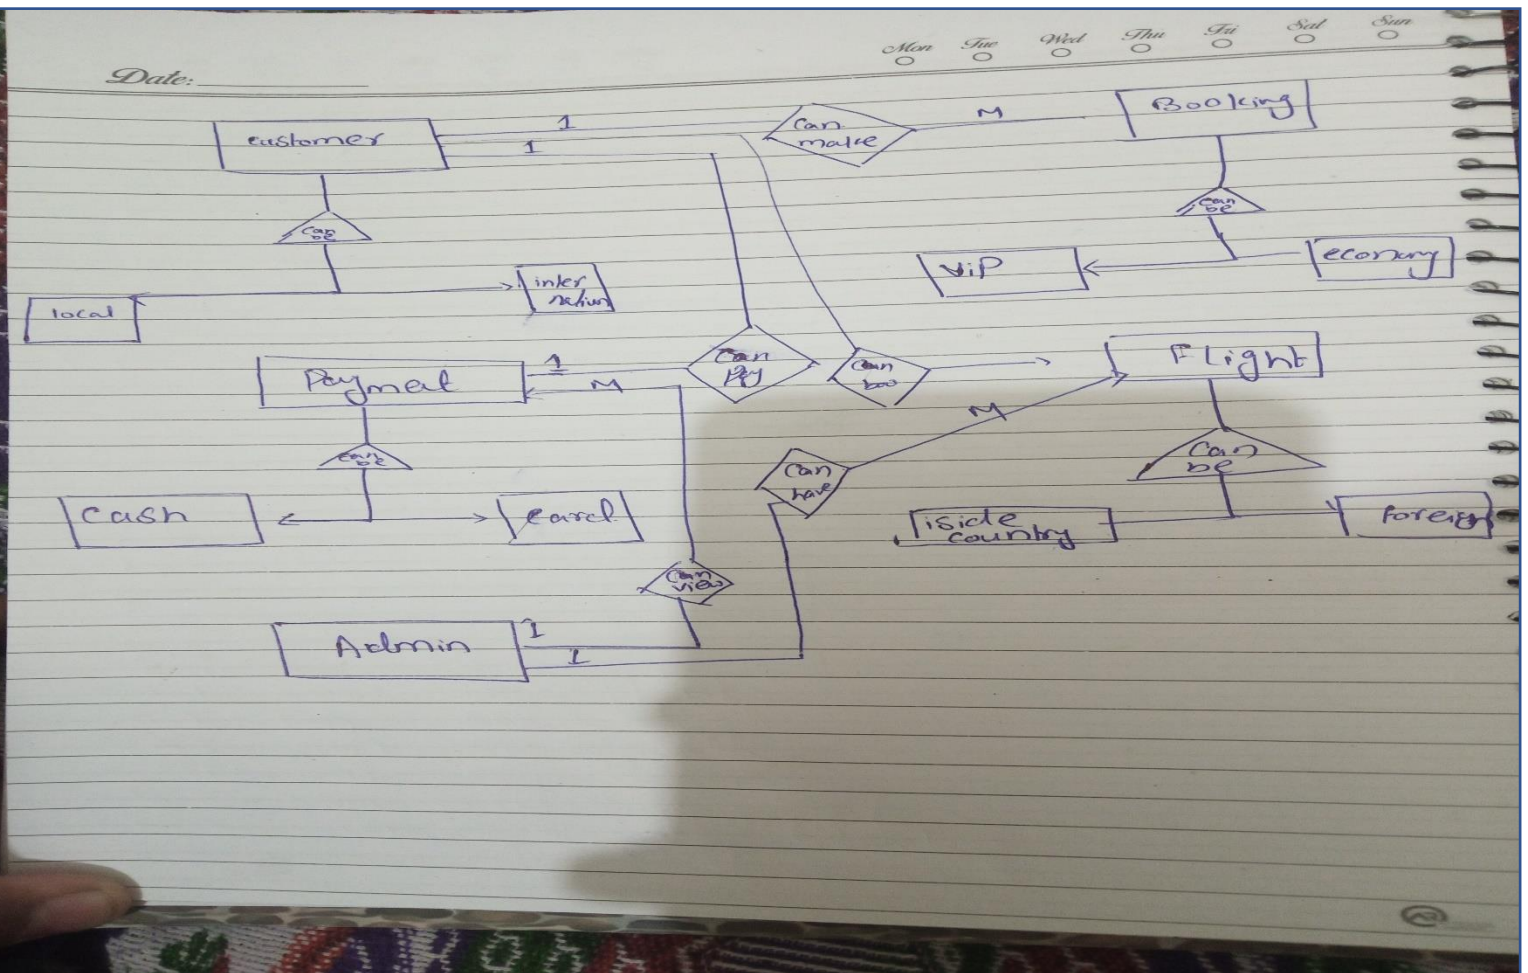 Mon Tue Wed Thu Fri Sat Sun
Date:
customer
1
1
Can
make
M
Booking
can
be
can
be
local
inter
nation
ViP
economy
Payment
1
M
Can
Pay
Can
boo
Flight
M
can
be
Can
have
Can
be
Cash
Card
iside
country
Foreign
Can
view
Admin
1
1